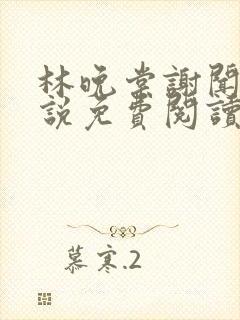 林晚棠謝聞
說免費閱讀
慕寒.2